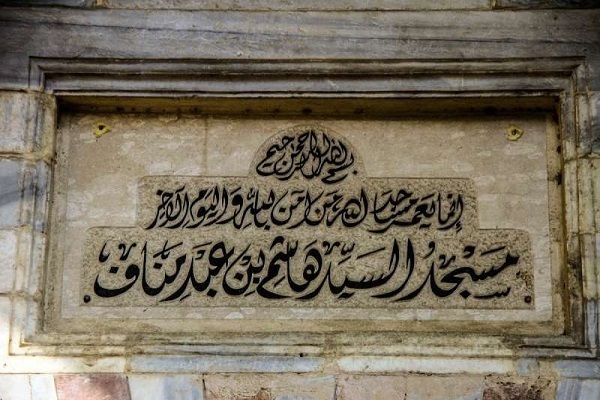 بسم الله الرحمن الرحيم
إنما يعمر مساجد الله من آمن بالله واليوم الآخر
مسجد السيد هاشم بن عبد مناف